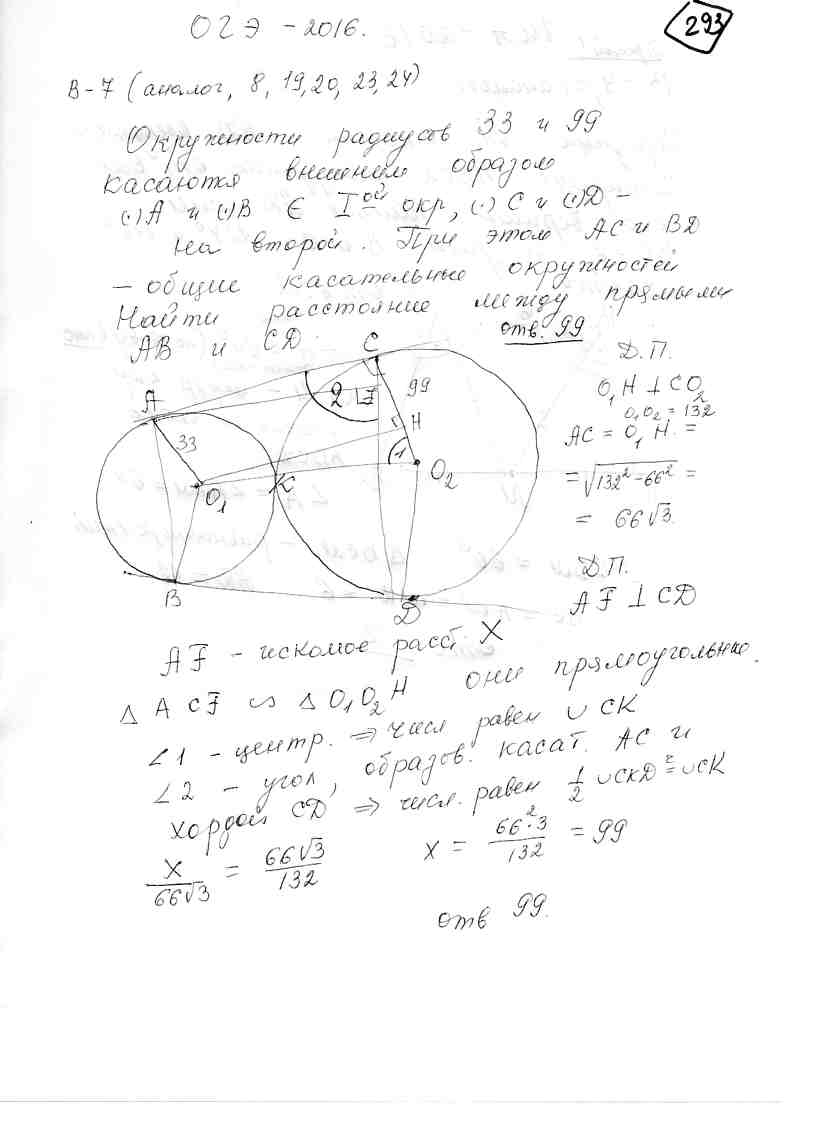 ОГЭ - 2016.
293
В-7 (аналог, 8, 19, 20, 23, 24)
Окружности радиусов 33 и 99
касаются внешним образом
(·)A и (·)B ∈ I ой окр, (·) C и (·)D -
на второй. При этом AC и BD
- общие касательные окружностей
Найти расстояние между прямыми
AB и CD.
отв. 99
C
A
99
2
F
H
33
1
O₁
K
O₂
B
D
Д.П.
O₁H ⊥ CO₂
O₁O₂ = 132
AC = O₁H =
= √132² - 66² =
= 66√3.
Д.П.
AF ⊥ CD
AF - искомое расст. X
△ ACF ∽ △ O₁O₂H они прямоугольные.
∠1 - центр. ⇒ числ равен ∪ CK
∠2 - угол, образов. касат. AC и
хордой CD ⇒ числ. равен 1/2 ∪CKD = ∪CK
X/66√3 = 66√3/132
X = 66²·3/132 = 99
отв 99.